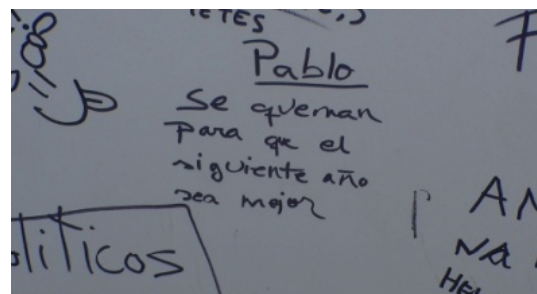 ETES
Pablo
Se queman
para que el
siguiente año
sea mejor
olíticos
AN
NA
HE